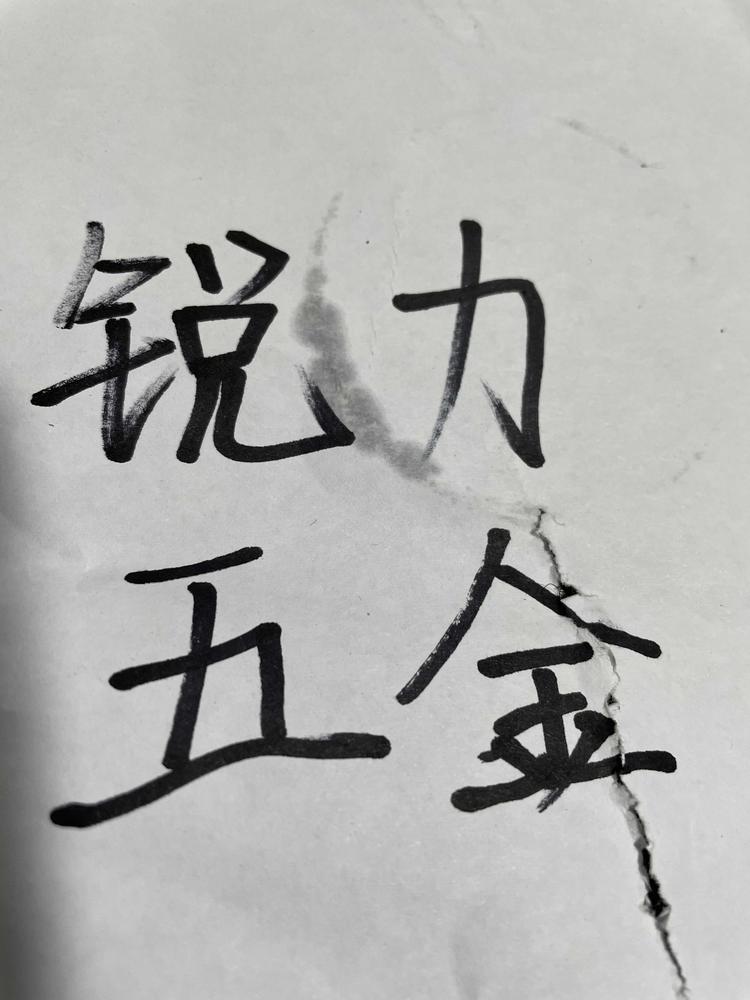 锐力
五金